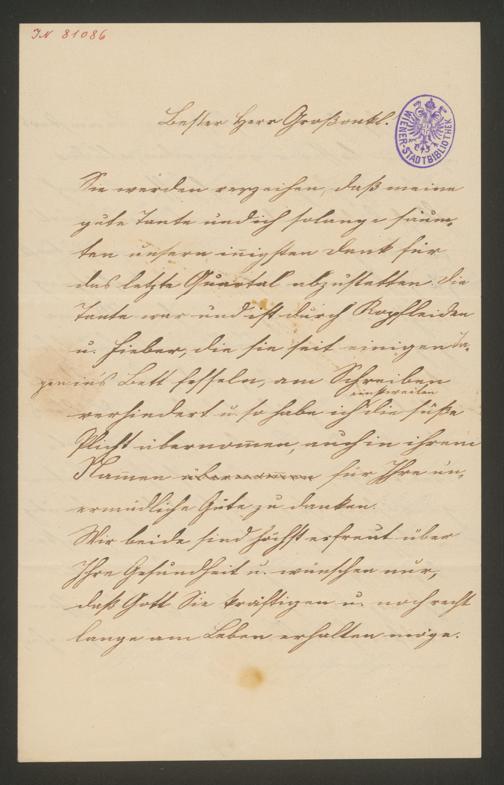 IN 81086
WIENER-STADTBIBLIOTHEK
Bester Herr Großonkl.
Sie werden verzeihen, daß meine
gute Tante und ich solange säum-
ten unsern iñigsten Dank für
das letzte Quartal abzustatten. Die
Tante war und ist durch Kopfleiden
u. Fieber, die sie seit einigen Ta-
gen in's Bett fesseln, am Schreiben
verhindert u. so habe ich einstweilen die süße
Plicht übernom̅en, auch in ihrem
Namen übernommen für Ihre un-
ermüdliche Güte zu danken.
Wir beide sind höchst erfreut über
Ihre Gesundheit u. wünschen nur,
daß Gott Sie kräftigen u. noch recht
lange am Leben erhalten möge.